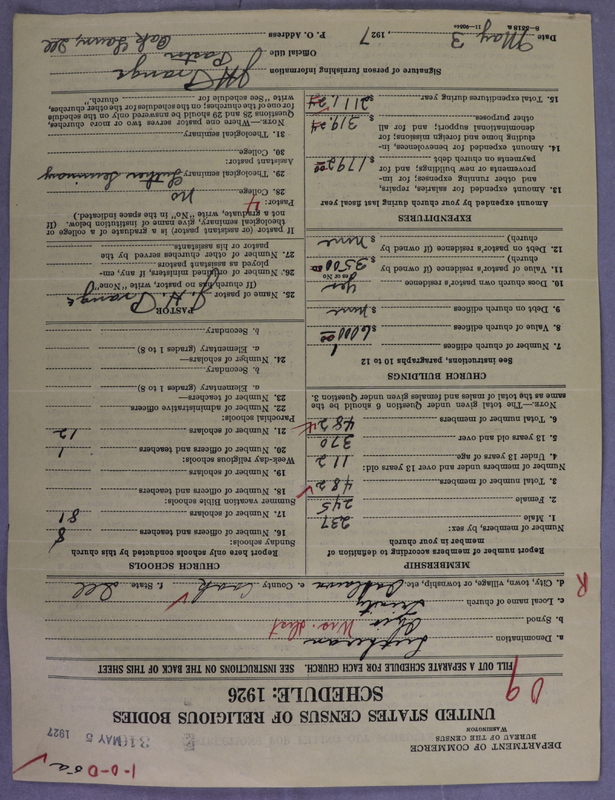 1-0-0 5a
DEPARTMENT OF COMMERCE
BUREAU OF THE CENSUS
WASHINGTON
31 MAY 5 1927
UNITED STATES CENSUS OF RELIGIOUS BODIES
SCHEDULE: 1926
09
FILL OUT A SEPARATE SCHEDULE FOR EACH CHURCH. SEE INSTRUCTIONS ON THE BACK OF THIS SHEET
a. Denomination Lutheran
b. Synod Ohio
c. Local name of church Trinity
d. City, town, village, or township, etc. Oaklawn e. County Cook f. State Ill
R
MEMBERSHIP
Report number of members according to definition of
member in your church
Number of members, by sex:
1. Male 237
2. Female 245
3. Total number of members 482
Number of members under and over 13 years old:
4. Under 13 years of age 112
5. 13 years old and over 370
6. Total number of members 482
NOTE.—The total given under Question 6 should be the
same as the total of males and females given under Question 3.
CHURCH BUILDINGS
See instructions, paragraphs 10 to 12
7. Number of church edifices 1
8. Value of church edifices $6000.00
9. Debt on church edifices none
10. Does church own pastor's residence Yes
Yes or No
11. Value of pastor's residence (if owned by
church) $3500.00
12. Debt on pastor's residence (if owned by
church) $ none
EXPENDITURES
Amount expended by your church during last fiscal year
13. Amount expended for salaries, repairs,
and other running expenses; for im-
provements or new buildings; and for
payments on church debt $1792.00
14. Amount expended for benevolences, in-
cluding home and foreign missions; for
denominational support; and for all
other purposes 319.24
15. Total expenditures during year 2111.24
CHURCH SCHOOLS
Report here only schools conducted by this church
Sunday schools:
16. Number of officers and teachers 8
17. Number of scholars 81
Summer vacation Bible schools:
18. Number of officers and teachers
19. Number of scholars
Week-day religious schools:
20. Number of officers and teachers 1
21. Number of scholars 12
Parochial schools:
22. Number of administrative officers
23. Number of teachers—
a. Elementary (grades 1 to 8)
b. Secondary
24. Number of scholars—
a. Elementary (grades 1 to 8)
b. Secondary
PASTOR
25. Name of pastor J. H. Prange
(If church has no pastor, write "None")
26. Number of ordained ministers, if any, em-
ployed as assistant pastors
27. Number of other churches served by the
pastor or his assistants
If pastor (or assistant pastor) is a graduate of a college or
theological seminary, give name of institution below. (If
not a graduate, write "No" in the space indicated.)
Pastor: 4
28. College no
29. Theological seminary Luther Seminary
Assistant pastor:
30. College
31. Theological seminary
NOTE.—Where one pastor serves two or more churches,
Questions 28 and 29 should be answered only on the schedule
for one of the churches; on the schedule for the other churches,
write "See schedule for church."
Signature of person furnishing information J H Prange
Official title Pastor
Date May 3, 1927 P. O. Address Oak Lawn, Ill